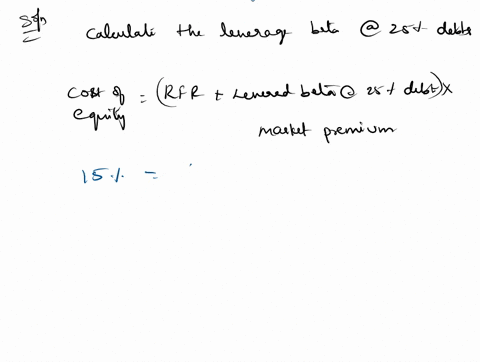 Soln
Calculate the leverage beta @ 25% debts
Cost of equity = (RFR + Levered beta @ 25% debt) x
market premium
15% =